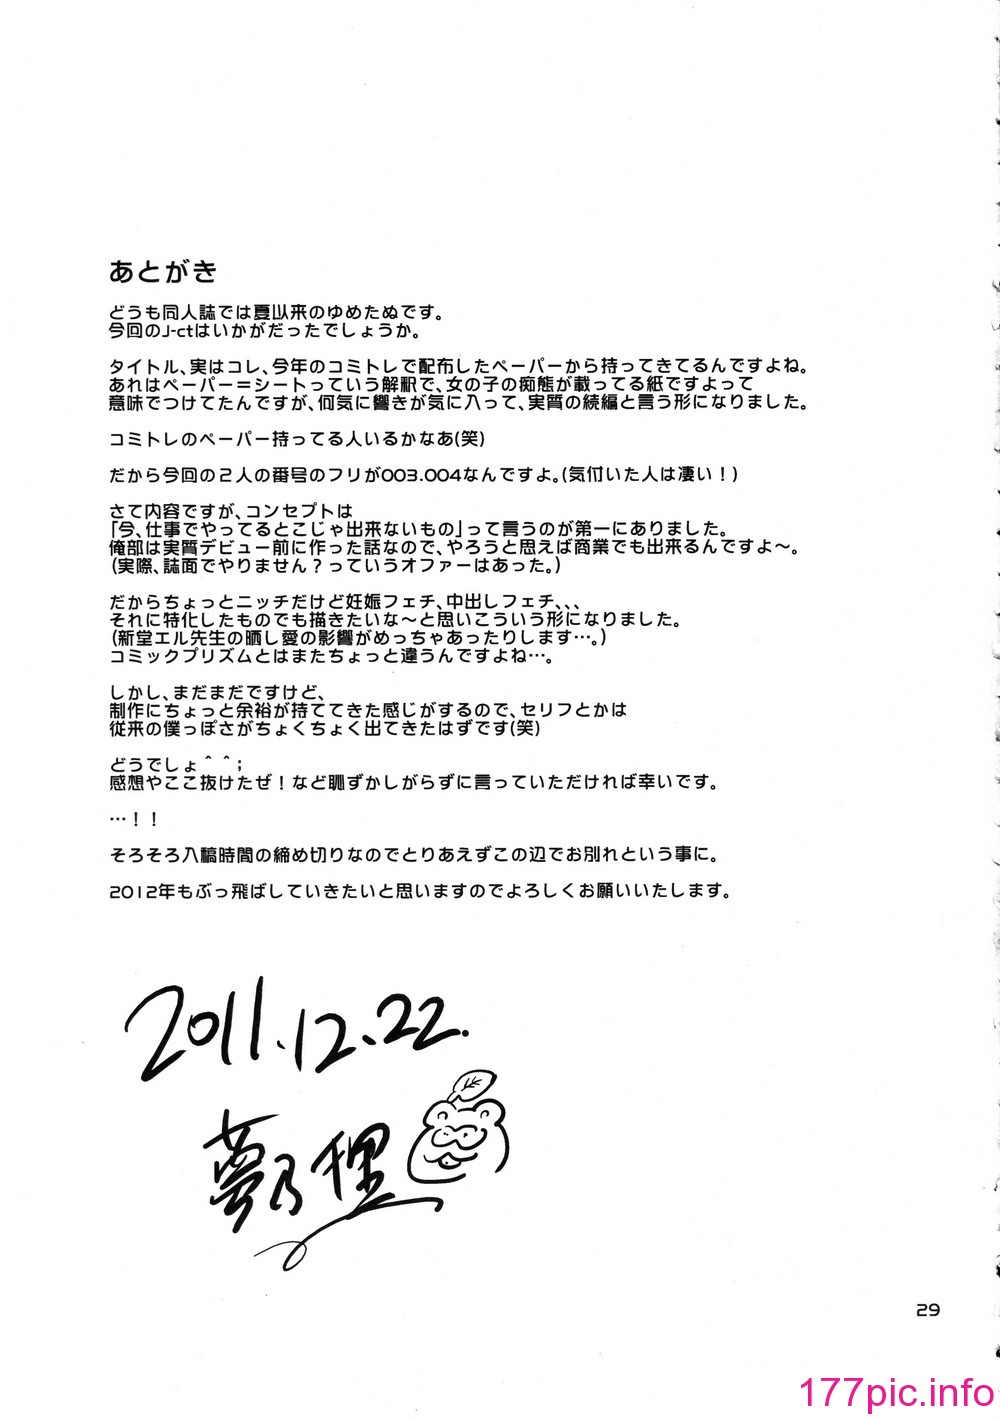 あとがき
どうも同人誌では夏以来のゆめたぬです。
今回のJ-ctはいかがだったでしょうか。
タイトル、実はコレ、今年のコミトレで配布したペーパーから持ってきてるんですよね。
あれはペーパー＝シートっていう解釈で、女の子の痴態が載ってる紙ですよって
意味でつけてたんですが、何気に響きが気に入って、実質の続編と言う形になりました。
コミトレのペーパー持ってる人いるかなあ(笑)
だから今回の２人の番号のフリが003.004なんですよ。(気付いた人は凄い！)
さて内容ですが、コンセプトは
「今、仕事でやってるとこじゃ出来ないもの」って言うのが第一にありました。
俺部は実質デビュー前に作った話なので、やろうと思えば商業でも出来るんですよ〜。
(実際、誌面でやりません？っていうオファーはあった。)
だからちょっとニッチだけど妊娠フェチ、中出しフェチ、、、
それに特化したものでも描きたいな〜と思いこういう形になりました。
(新堂エル先生の晒し愛の影響がめっちゃあったりします…。)
コミックプリズムとはまたちょっと違うんですよね…。
しかし、まだまだですけど、
制作にちょっと余裕が持ててきた感じがするので、セリフとかは
従来の僕っぽさがちょくちょく出てきたはずです(笑)
どうでしょ＾＾；
感想やここ抜けたぜ！など恥ずかしがらずに言っていただければ幸いです。
…！！
そろそろ入稿時間の締め切りなのでとりあえずこの辺でお別れという事に。
2012年もぶっ飛ばしていきたいと思いますのでよろしくお願いいたします。
2011.12.22.
夢乃狸
29
177pic.info